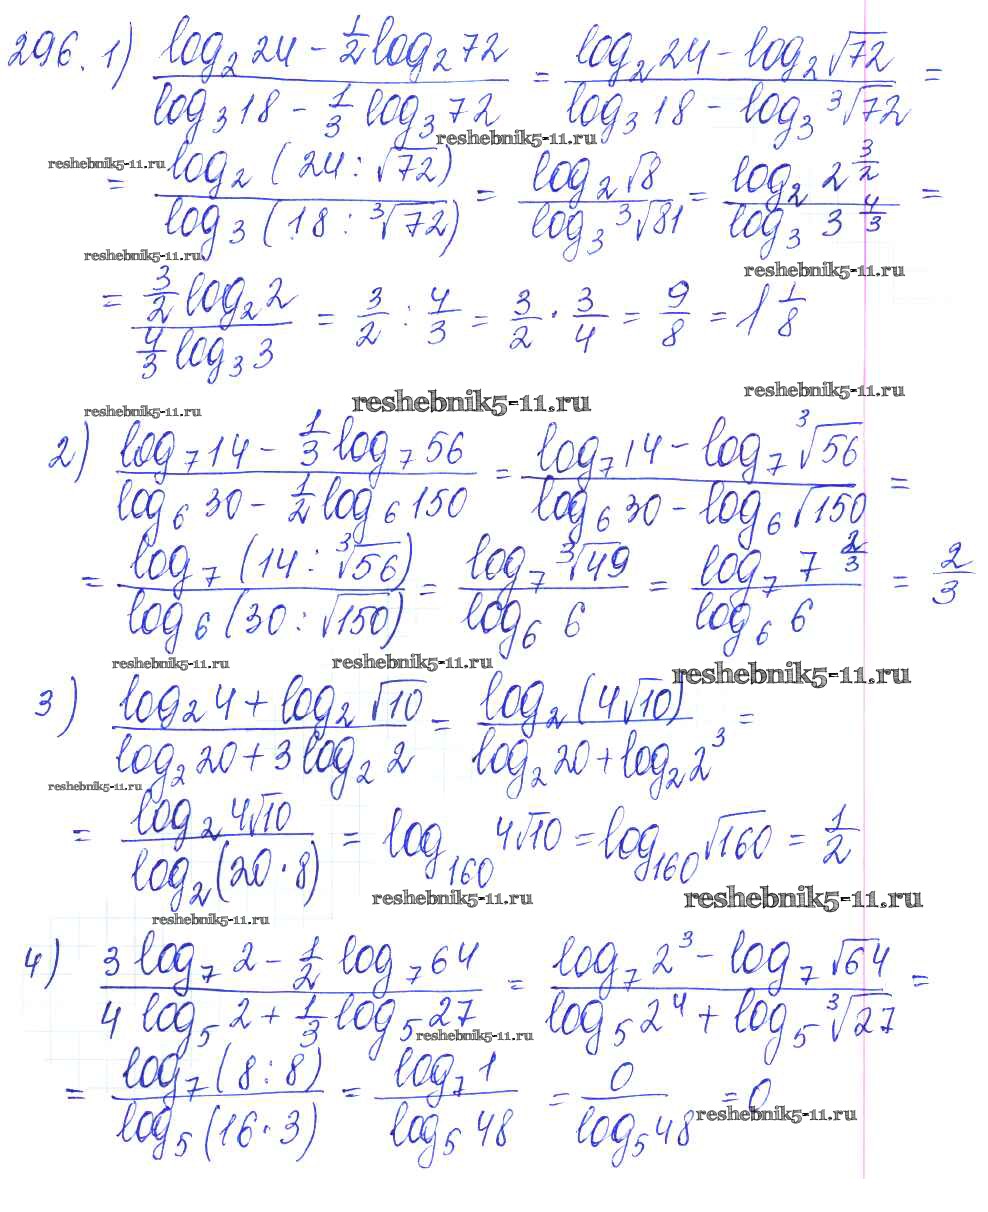 296. 1) (log₂ 24 − 1/2 log₂ 72)/(log₃ 18 − 1/3 log₃ 72) = (log₂ 24 − log₂ √72)/(log₃ 18 − log₃ ∛72) =
reshebnik5-11.ru
reshebnik5-11.ru
= (log₂ (24 : √72))/(log₃ (18 : ∛72)) = (log₂ √8)/(log₃ ∛81) = (log₂ 2^(3/2))/(log₃ 3^(4/3)) =
reshebnik5-11.ru
reshebnik5-11.ru
= (3/2 log₂ 2)/(4/3 log₃ 3) = 3/2 : 4/3 = 3/2 · 3/4 = 9/8 = 1 1/8
reshebnik5-11.ru
reshebnik5-11.ru
reshebnik5-11.ru
2) (log₇ 14 − 1/3 log₇ 56)/(log₆ 30 − 1/2 log₆ 150) = (log₇ 14 − log₇ ∛56)/(log₆ 30 − log₆ √150) =
= (log₇ (14 : ∛56))/(log₆ (30 : √150)) = (log₇ ∛49)/(log₆ 6) = (log₇ 7^(2/3))/(log₆ 6) = 2/3
reshebnik5-11.ru
reshebnik5-11.ru
reshebnik5-11.ru
3) (log₂ 4 + log₂ √10)/(log₂ 20 + 3 log₂ 2) = (log₂ (4√10))/(log₂ 20 + log₂ 2³) =
reshebnik5-11.ru
= (log₂ 4√10)/(log₂ (20 · 8)) = log₁₆₀ 4√10 = log₁₆₀ √160 = 1/2
reshebnik5-11.ru
reshebnik5-11.ru
reshebnik5-11.ru
4) (3 log₇ 2 − 1/2 log₇ 64)/(4 log₅ 2 + 1/3 log₅ 27) = (log₇ 2³ − log₇ √64)/(log₅ 2⁴ + log₅ ∛27) =
reshebnik5-11.ru
= (log₇ (8 : 8))/(log₅ (16 · 3)) = (log₇ 1)/(log₅ 48) = 0/(log₅ 48) = 0
reshebnik5-11.ru